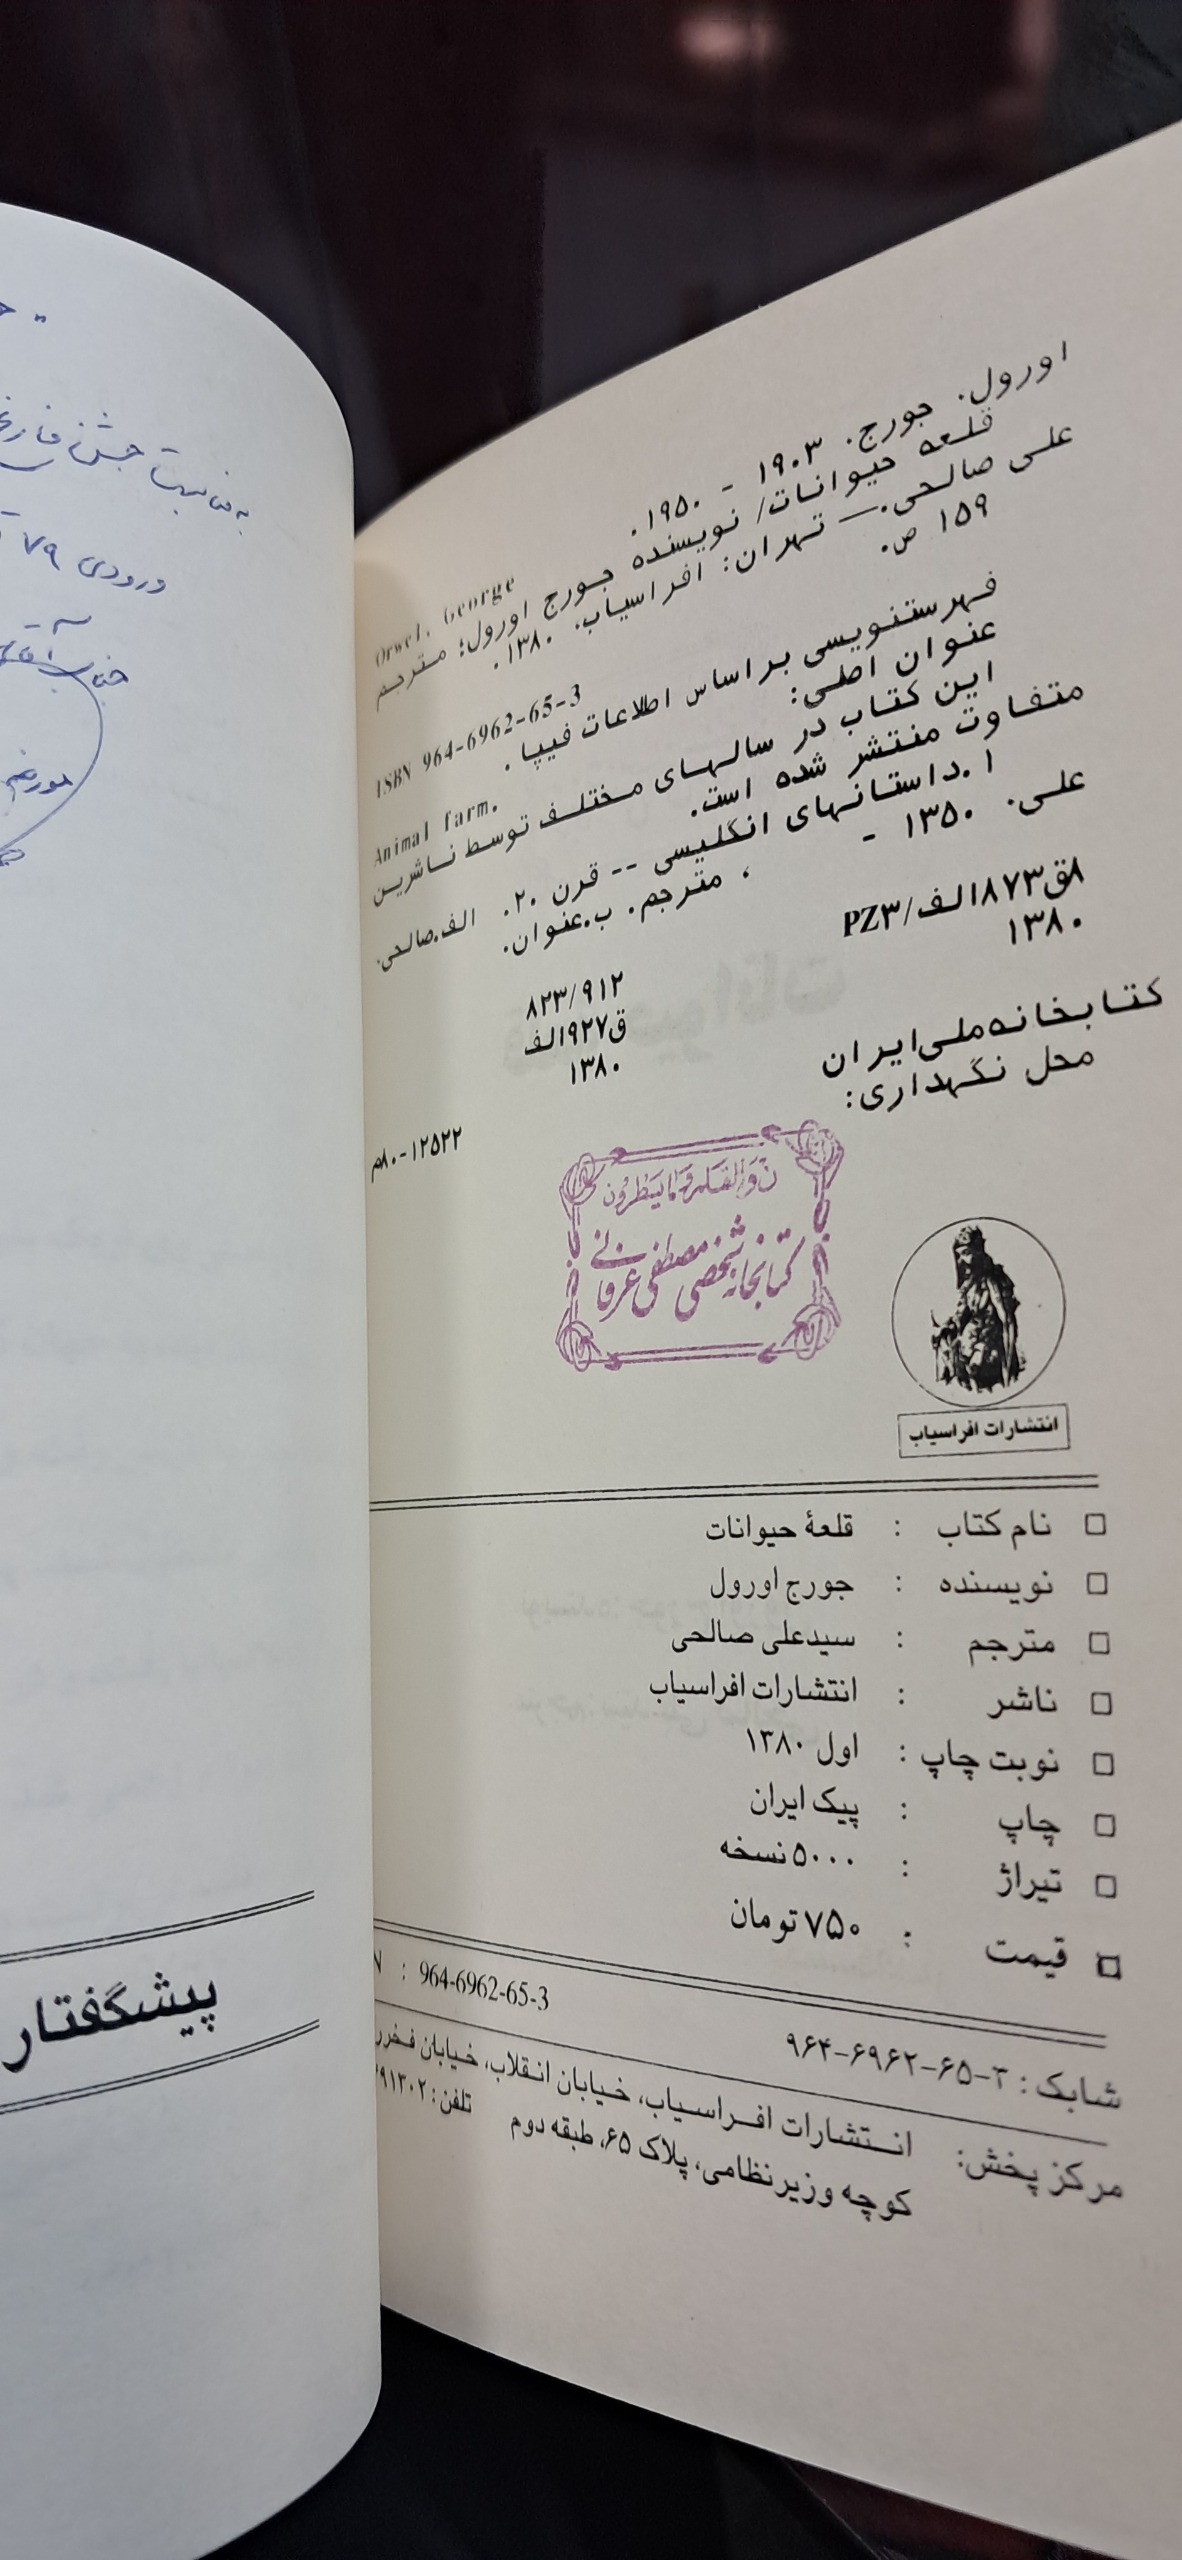 اورول. جورج. ۱۹۰۳ - ۱۹۵۰.
Orwel, George
قلعه حیوانات/ نویسنده جورج اورول؛ مترجم
علی صالحی.— تهران: افراسیاب. ۱۳۸۰.
۱۵۹ ص.
ISBN 964-6962-65-3
فهرستنویسی براساس اطلاعات فیپا.
عنوان اصلی: Animal farm.
این کتاب در سالهای مختلف توسط ناشرین
متفاوت منتشر شده است.
۱.داستانهای انگلیسی -- قرن ۲۰. الف.صالحی،
علی. ۱۳۵۰ - ، مترجم. ب.عنوان.
۸ق۱۸۷۳الف/PZ۳ ۸۲۳/۹۱۲
۱۳۸۰ ق۹۲۷الف
۱۳۸۰
کتابخانه‌ملی‌ایران
محل نگهداری:
۸۰م-۱۲۵۲۲
ن والقلم و ما یسطرون
کتابخانه شخصی مصطفی عرفانی
انتشارات افراسیاب
□ نام کتاب : قلعهٔ حیوانات
□ نویسنده : جورج اورول
□ مترجم : سیدعلی صالحی
□ ناشر : انتشارات افراسیاب
□ نوبت چاپ : اول ۱۳۸۰
□ چاپ : پیک ایران
□ تیراژ : ۵۰۰۰ نسخه
□ قیمت : ۷۵۰ تومان
شابک : ۳-۶۵-۶۹۶۲-۹۶۴ N : 964-6962-65-3
مرکز پخش: انتشارات افراسیاب، خیابان انقلاب، خیابان فخرر
کوچه وزیرنظامی، پلاک ۶۵، طبقه دوم تلفن: ۹۱۳۰۲
به مناسبت جشن
ورودی ۷۹
جناب آقای
پیشگفتار